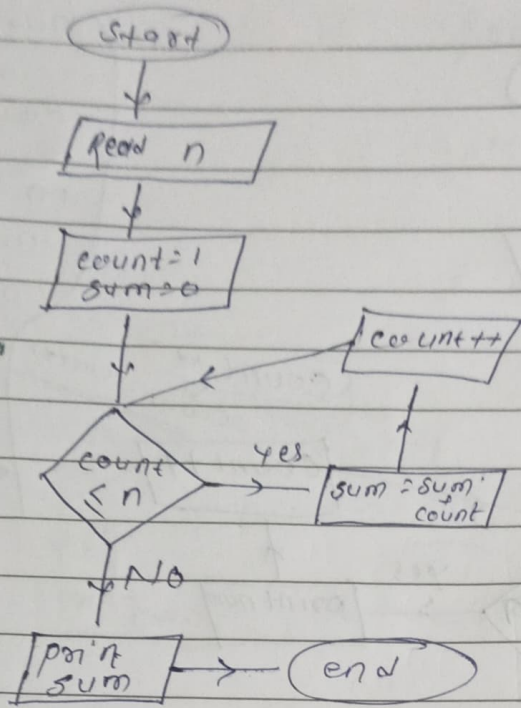 Start
Read n
count=1
sum=0
count++
count
≤ n
yes
sum = sum
+
count
NO
print
sum
end